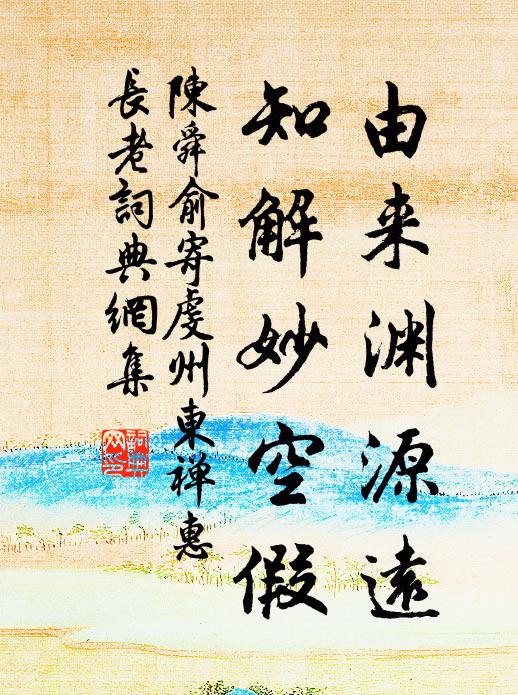 由来渊源遠
知解妙空假
陳舜俞寄虔州東禅惠
長老詞典網集